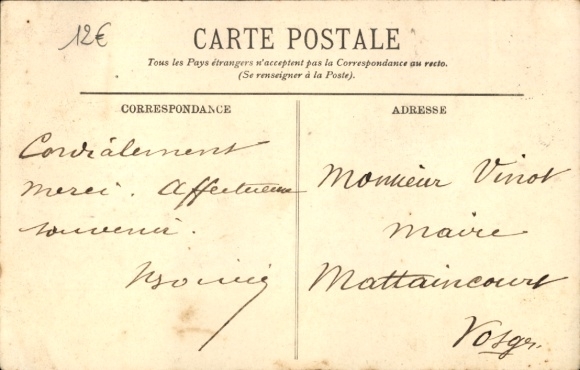 12€
CARTE POSTALE
Tous les Pays étrangers n'acceptent pas la Correspondance au recto.
(Se renseigner à la Poste).
CORRESPONDANCE
Cordialement
merci. Affectueux
souvenir.
ADRESSE
Monsieur Vinot
Maire
Mattaincourt
Vosges.